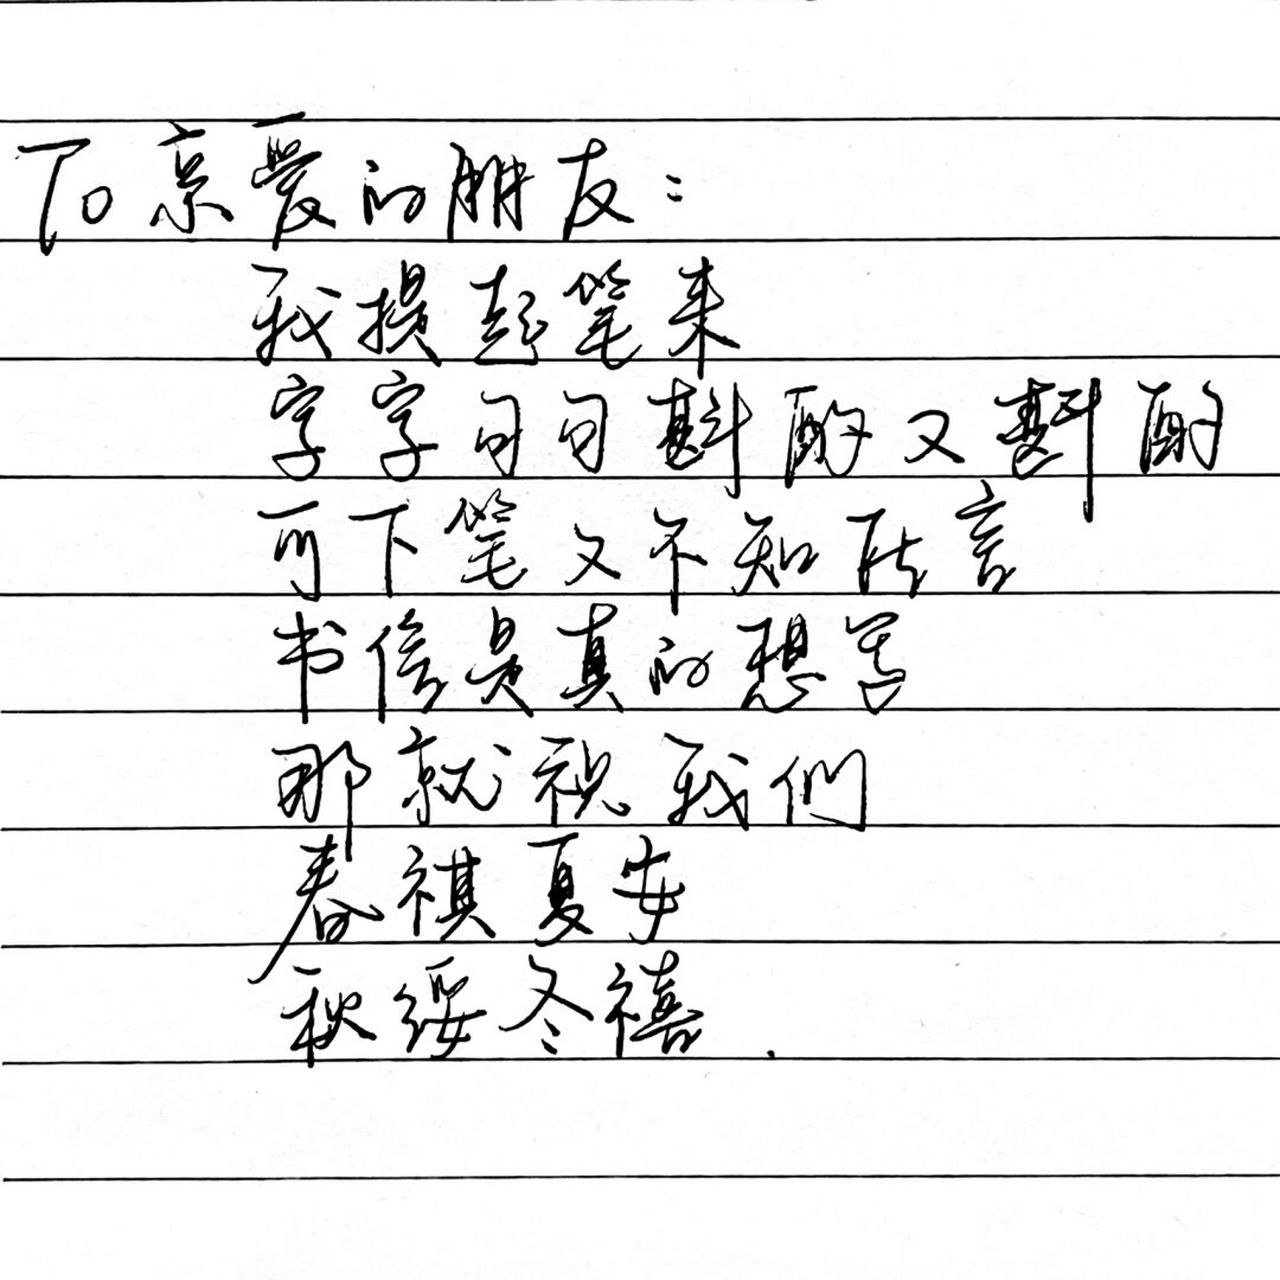 To 亲爱的朋友：
我提起笔来
字字句句斟酌又斟酌
可下笔又不知所言
书信是真的想写
那就祝我們
春祺夏安
秋绥冬禧.